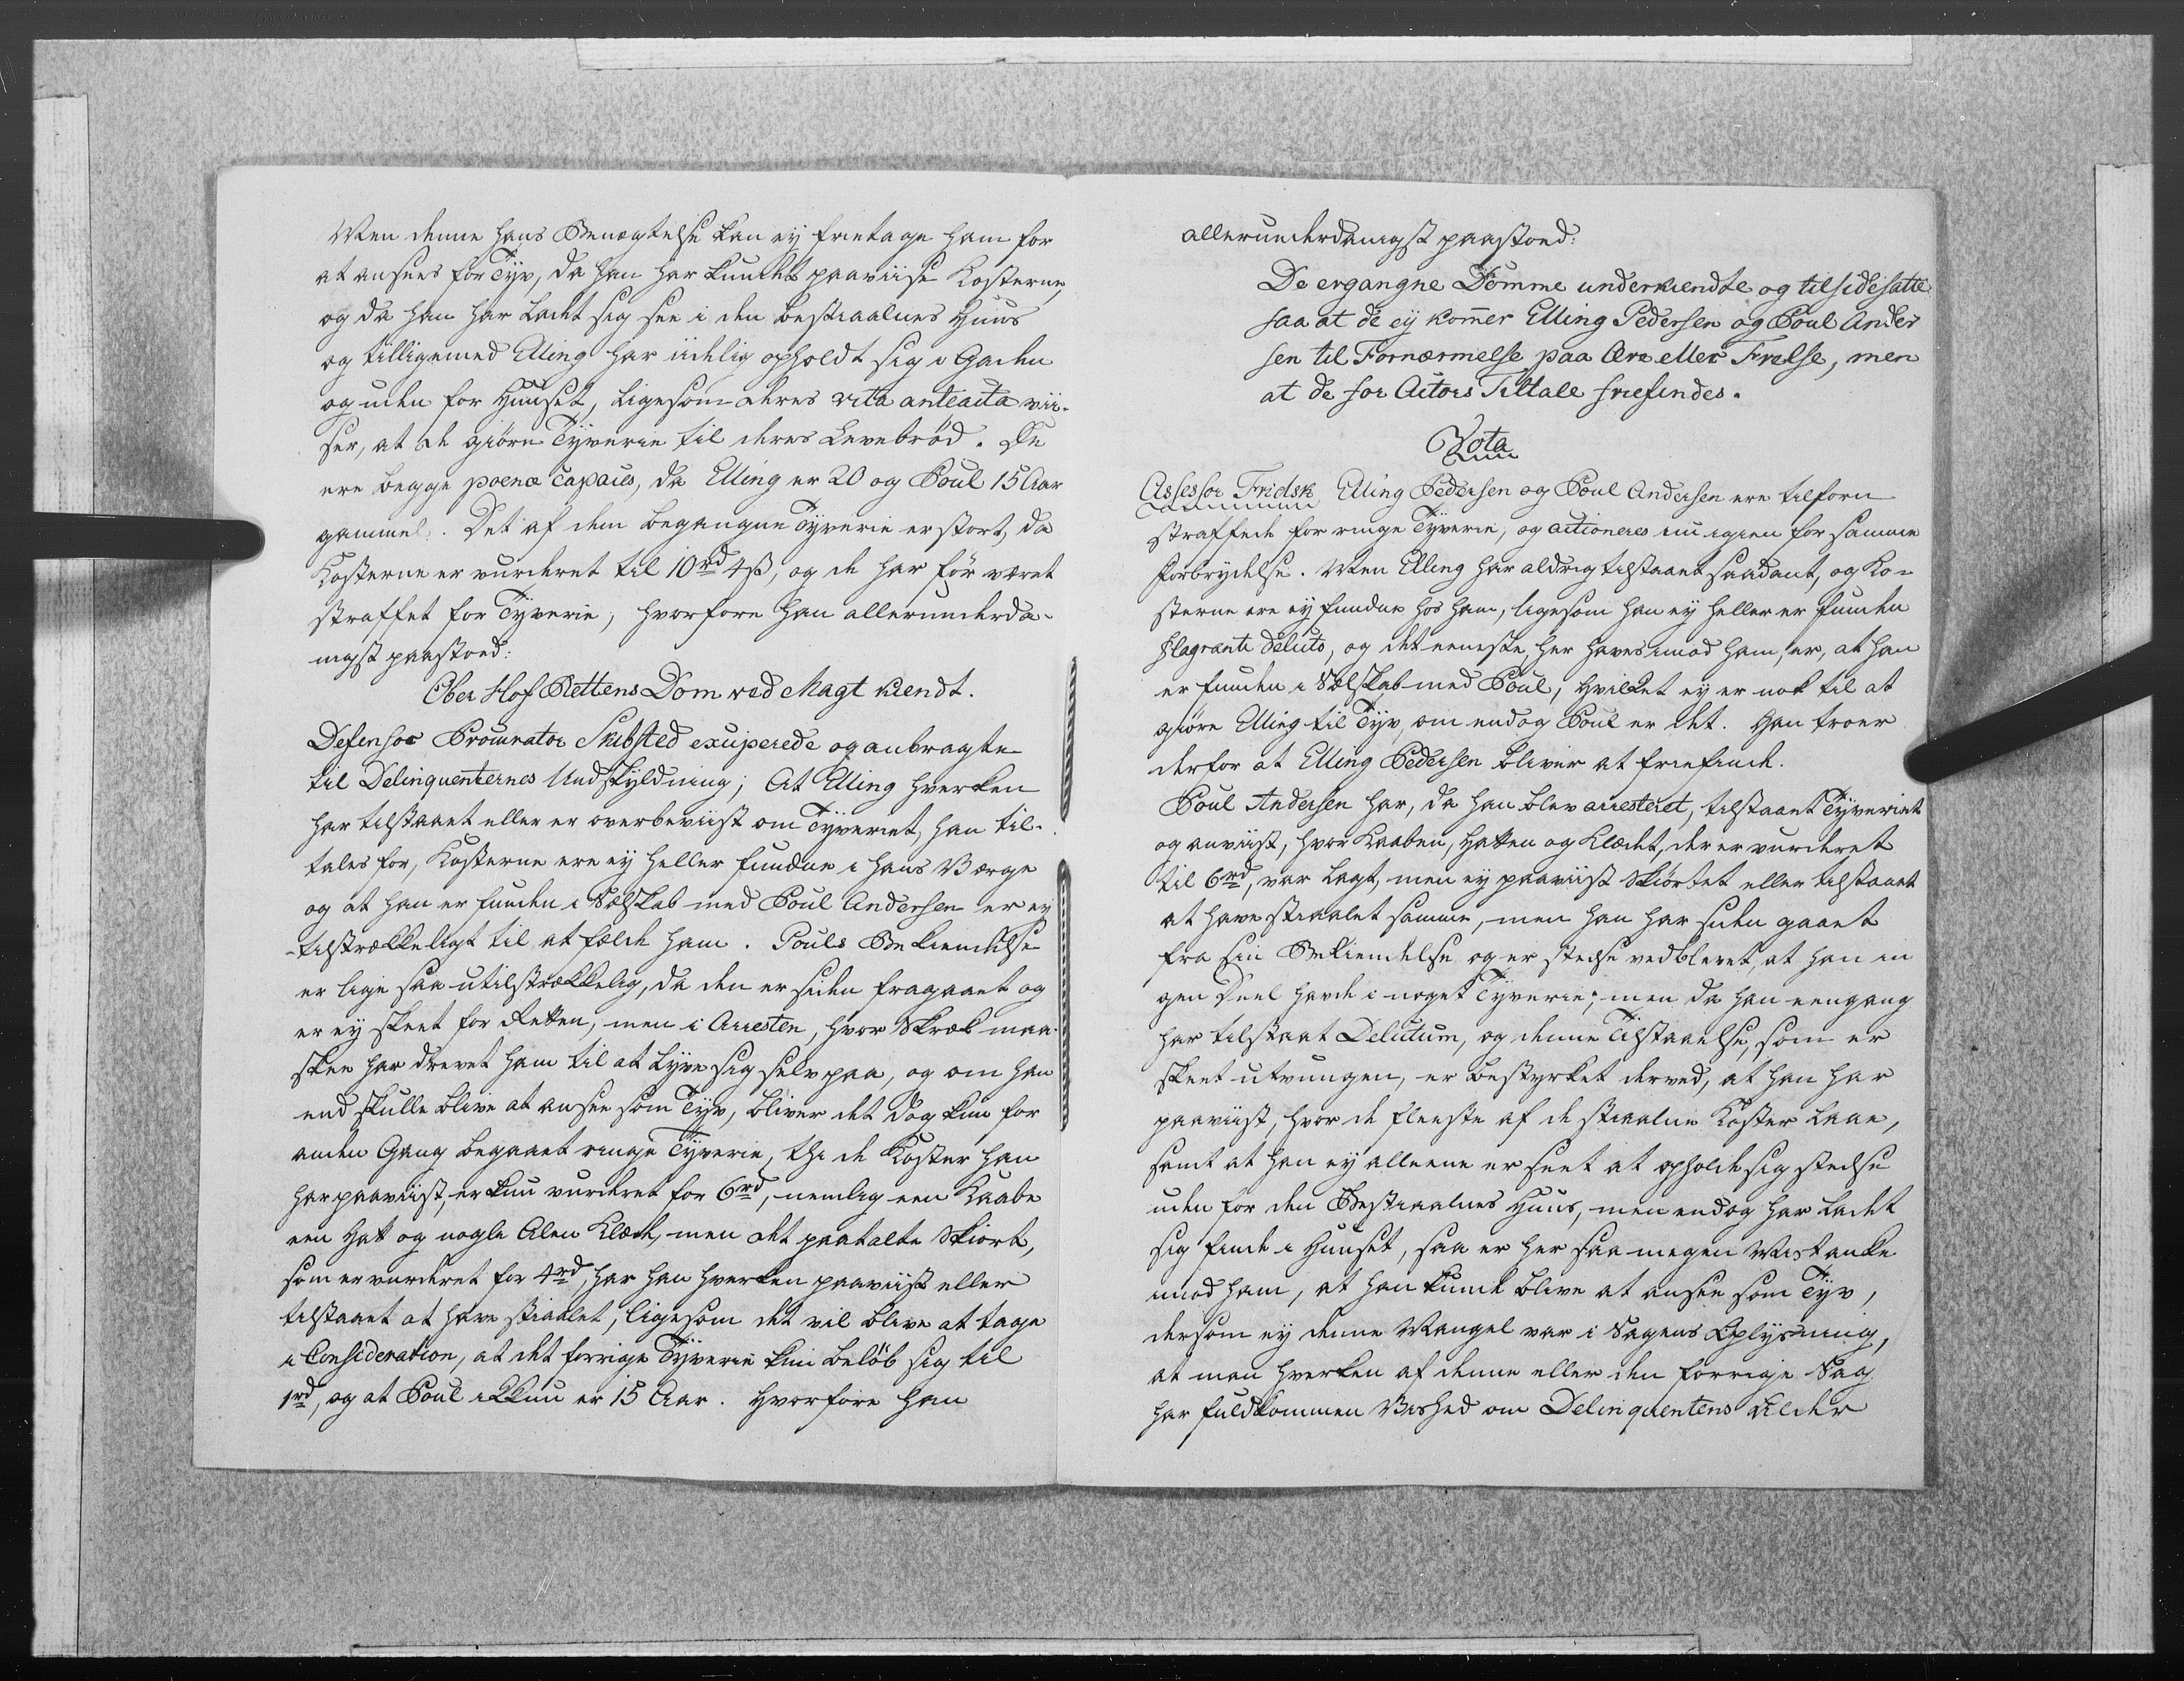 Men denne hans Benægtelse kan ey fritage ham for
at ansees for Tyv, da han har kundet paaviise Kosterne,
og da han har ladet sig see i den bestiaalnes Huus
og tilligemed Elling har iidelig opholdt sig i Gaden
og uden for Huuset, ligesom deres vita anteacta vii-
ser, at de giøre Tyverie til deres Levebrød. De
ere begge poenæ capaces, da Elling er 20 og Poul 15 Aar
gammel. Det af dem begangne Tyverie er stort, da
Kosterne er vurderet til 10rd 4ß, og de har før været
straffet for Tyverie, hvorfore han allerunderda-
nigst paastoed:
Ober Hof Rettens Dom ved Magt kiendt.
Defensor Procurator Skibsted exciperede og anbragte
til Delinquenternes Undskyldning; At Elling hverken
har tilstaaet eller er overbeviist om Tyveriet, han til-
tales for, Kosterne ere ey heller fundne i hans Værge
og at han er funden i Selskab med Poul Andersen er ey
tilstrækkeligt til at fælde ham. Pouls Bekiendelse
er lige saa utilstrækkelig, da den er siden fragaaet og
er ey skeet for Retten, men i Arresten, hvor Skræk maa-
skee har drevet ham til at lyve sig selv paa, og om han
end skulle blive at ansee som Tyv, bliver det dog kun for
anden Gang begaaet ringe Tyverie, thi de Koster han
har paaviist, er kun vurderet for 6rd, nemlig een Kaabe
een Hat og nogle Alen Klæde, men det paatalte Skiørt,
som er vurderet for 4rd, har han hverken paaviist eller
tilstaaet at have stiaalet, ligesom det vil blive at tage
i Consideration, at det forrige Tyverie kun beløb sig til
1rd, og at Poul ikkun er 15 Aar. Hvorfore han
allerunderdanigst paastoed:
De ergangne Domme underkiendte og tilsidesatte
saa at de ey kom̅er Elling Pedersen og Poul Ander
sen til Fornærmelse paa Ære eller Frelse, men
at de for Actors Tiltale friefindes.
Vota
Assessor Fridsk, Elling Pedersen og Poul Andersen ere tilforn
straffede for ringe Tyverie, og actioneres nu igien for samme
Forbrydelse. Men Elling har aldrig tilstaaet saadant, og Ko-
sterne ere ey fundne hos ham, ligesom han ey heller er funden
flagrante delicto, og det eeneste, her haves imod ham, er, at han
er funden i Selskab med Poul, hvilket ey er nok til at
giøre Elling til Tyv, om endog Poul er det. Han troer
derfor at Elling Pedersen bliver at friefinde.
Poul Andersen har, da han blev arresteret, tilstaaet Tyveriet
og anviist, hvor Kaaben, Hatten og Klædet, der er vurderet
til 6rd, var lagt, men ey paaviist Skiørtet eller tilstaaet
at have stiaalet samme, men han har siden gaaet
fra sin Bekiendelse og er stedse vedblevet, at han in
gen Deel havde i noget Tyverie; men da han eengang
har tilstaaet Delictum, og denne Tilstaaelse, som er
skeet utvungen, er bestyrket derved, at han har
paaviist, hvor de fleeste af de stiaalne Koster laae,
samt at han ey alleene er seet at opholde sig stedse
uden for den Bestiaalnes Huus, men endog har ladet
sig finde i Huuset, saa er her saa megen Mistanke
imod ham, at han kunde blive at ansee som Tyv,
dersom ey denne Mangel var i Sagens Oplysning,
at man hverken af denne eller den forrige Sag
har fuldkommen Vished om Delinquentens Alder